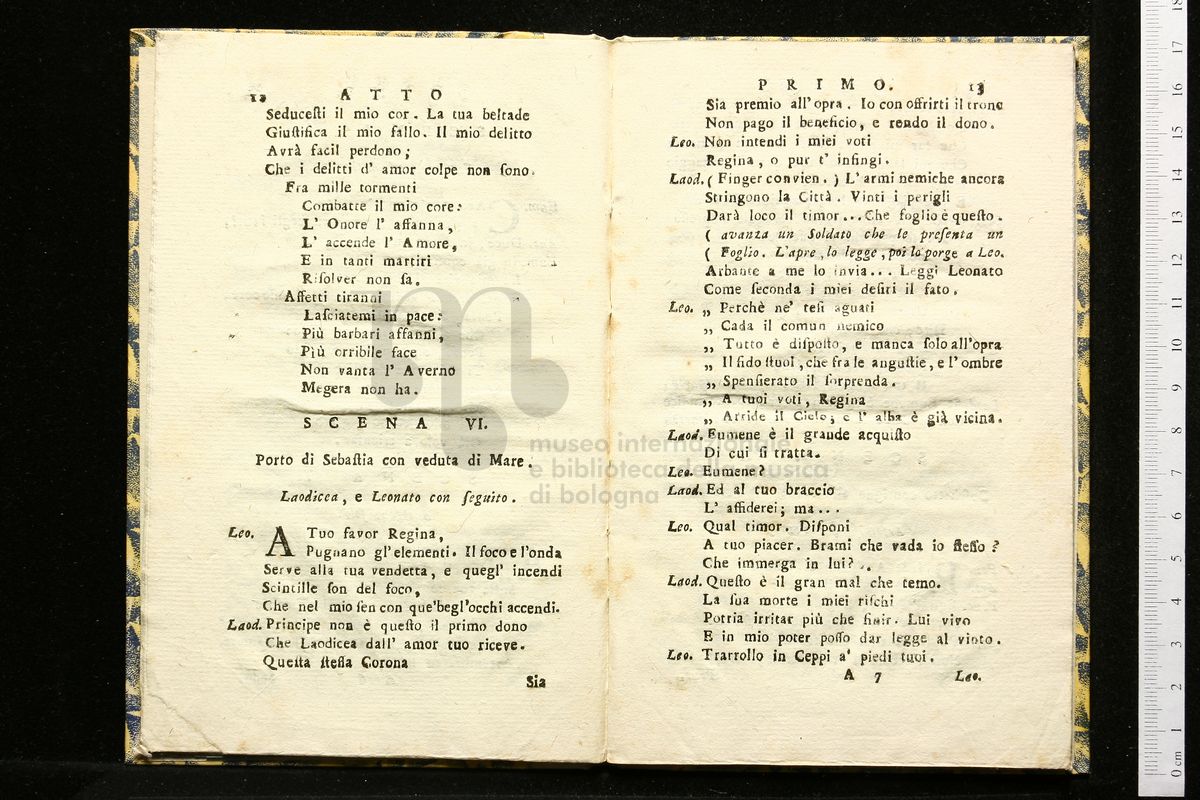 12 ATTO
Seducesti il mio cor. La tua beltade
Giuſtifica il mio fallo. Il mio delitto
Avrà facil perdono;
Che i delitti d' amor colpe non ſono.
Fra mille tormenti
Combatte il mio core:
L' Onore l' affanna,
L' accende l' Amore,
E in tanti martiri
Riſolver non ſa.
Affetti tiranni
Laſciatemi in pace:
Più barbari affanni,
Più orribile face
Non vanta l' Averno
Megera non ha.
SCENA VI.
Porto di Sebaſtia con veduta di Mare.
Laodicea, e Leonato con ſeguito.
Leo. A Tuo favor Regina,
Pugnano gl'elementi. Il foco e l'onda
Serve alla tua vendetta, e quegl' incendi
Scintille ſon del foco,
Che nel mio ſen con que'begl'occhi accendi.
Laod. Principe non è queſto il primo dono
Che Laodicea dall' amor tuo riceve.
Queſta ſteſſa Corona
Sia
PRIMO. 13
Sia premio all'opra. Io con offrirti il trono
Non pago il beneficio, e rendo il dono.
Leo. Non intendi i miei voti
Regina, o pur t' infingi.
Laod. (Finger convien.) L'armi nemiche ancora
Stringono la Città. Vinti i perigli
Darà loco il timor... Che foglio è queſto.
( avanza un Soldato che le preſenta un
( Foglio. L'apre, lo legge, poi lo porge a Leo.
Arbante a me lo invia... Leggi Leonato
Come ſeconda i miei deſiri il fato.
Leo. ,, Perchè ne' teſi aguati
,, Cada il comun nemico
,, Tutto è diſpoſto, e manca ſolo all'opra
,, Il fido ſtuol, che fra le anguſtie, e l'ombre
,, Spenſierato il ſorprenda.
,, A tuoi voti, Regina
,, Arride il Cielo; e l' alba è già vicina.
Laod. Eumene è il grande acquiſto
Di cui ſi tratta.
Leo. Eumene?
Laod. Ed al tuo braccio
L' affiderei; ma...
Leo. Qual timor. Diſponi
A tuo piacer. Brami che vada io ſteſſo?
Che immerga in lui?..
Laod. Queſto è il gran mal che temo.
La ſua morte i miei riſchi
Potria irritar più che finir. Lui vivo
E in mio poter poſſo dar legge al vinto.
Leo. Trarrollo in Ceppi a' piedi tuoi.
A 7 Leo.
museo internazionale
e biblioteca della musica
di bologna
0 cm 1 2 3 4 5 6 7 8 9 10 11 12 13 14 15 16 17 18